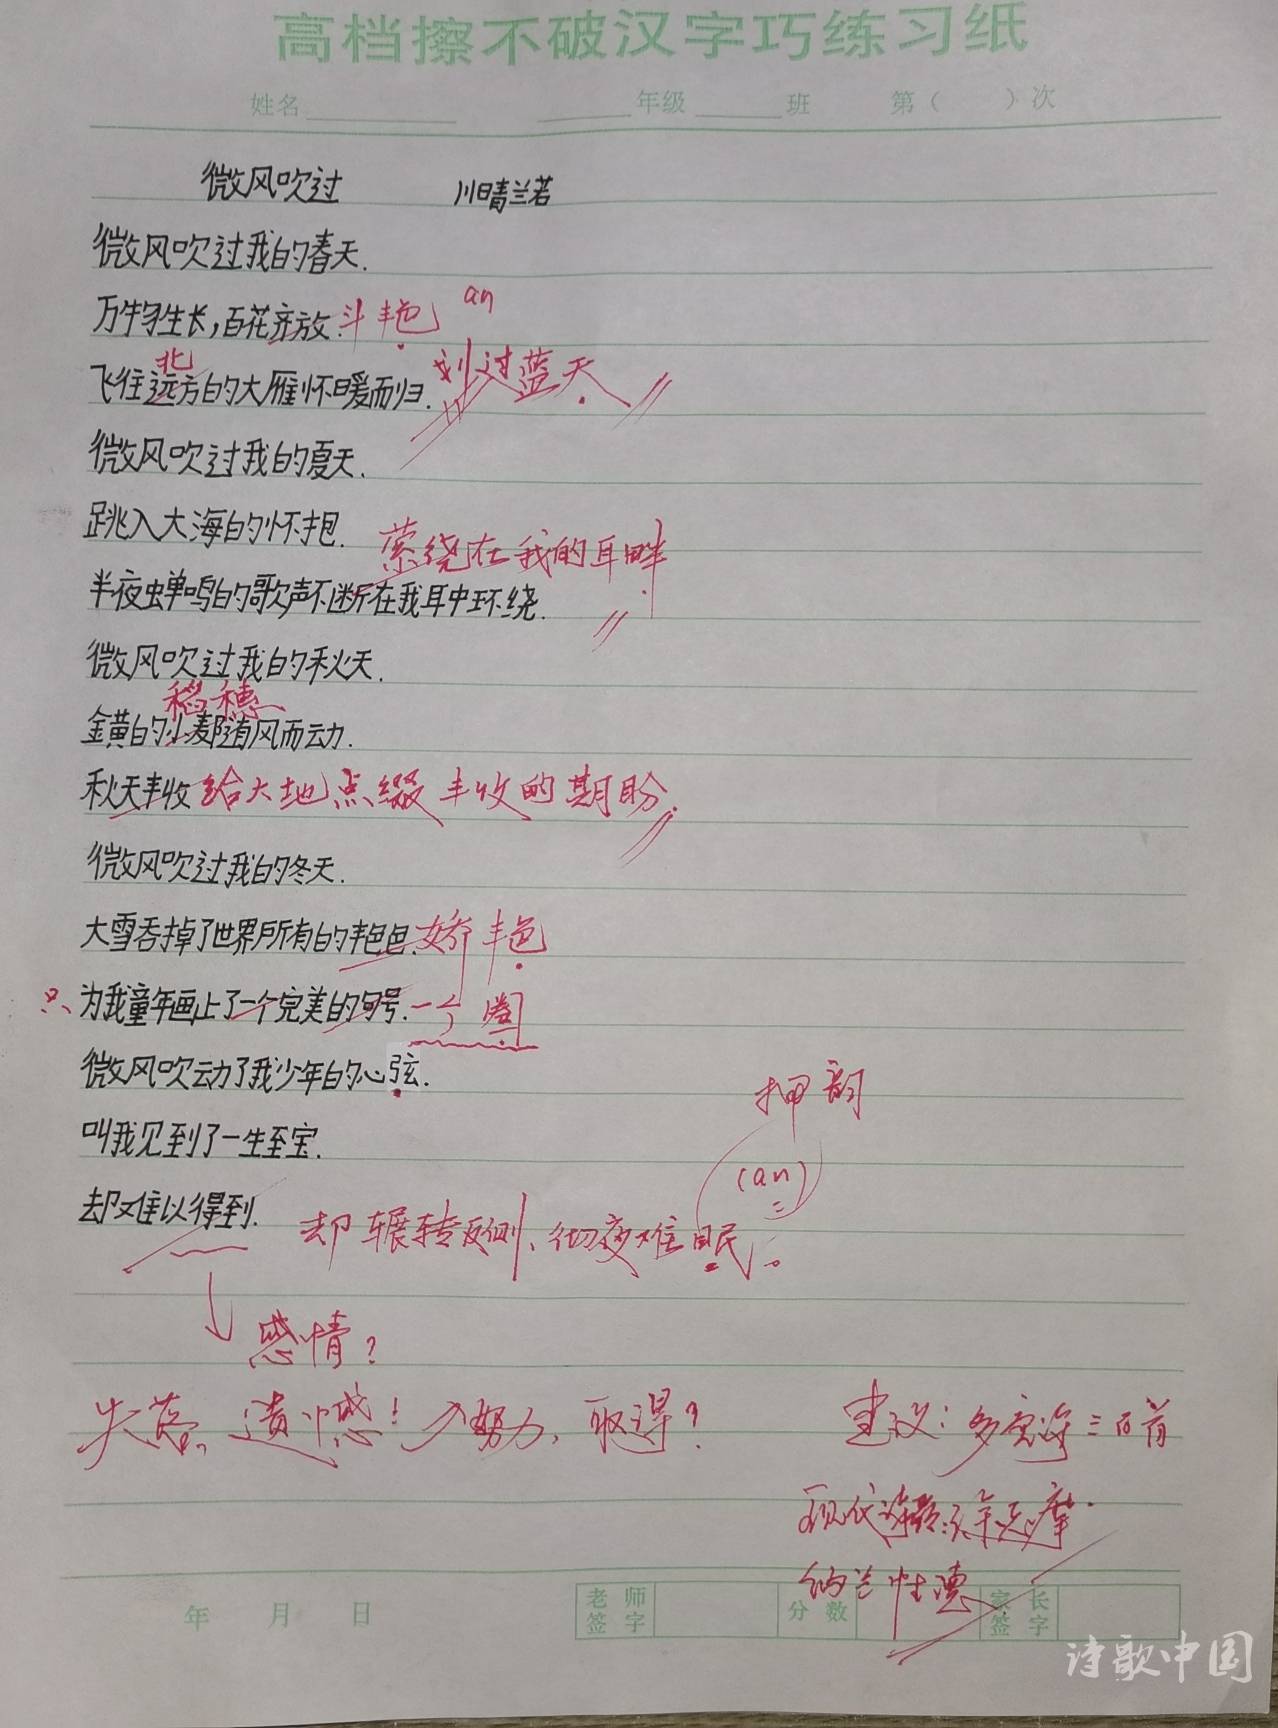 高档擦不破汉字巧练习纸
姓名 年级 班 第( )次
微风吹过 川晴兰若
微风吹过我的春天.
万物生长,百花齐放.斗艳 an
北
飞往远方的大雁怀暖而归.划过蓝天
微风吹过我的夏天.
跳入大海的怀抱.
萦绕在我的耳畔.
半夜蝉鸣的歌声不断在我耳中环绕.
微风吹过我的秋天.
稻穗
金黄的小麦随有风而动.
秋天丰收给大地点缀丰收的期盼.
微风吹过我的冬天.
大雪吞掉了世界所有的艳色.娇艳
只为我童年画上了一个完美的句号.一个圈
微风吹动了我少年的心弦.
押韵
叫我见到了一生至宝.
(an)
却难以得到.却辗转反侧、彻夜难眠。
感情?
失落、遗憾! 努力,取得?
建议:多 三百首
现代诗歌:徐志摩.
纳兰性德
年 月 日 老师签字 分数 家长签字
诗歌中国